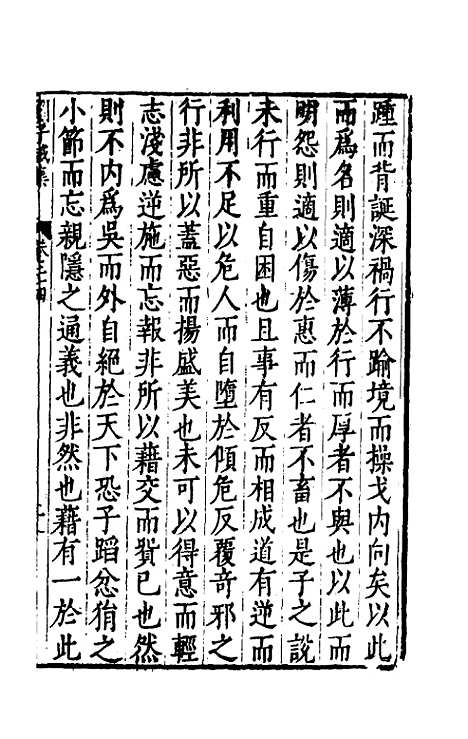 踵而背誕深禍行不踰境而操戈内向矣以此
而爲名則適以薄於行而厚者不與也以此而
明怨則適以傷於惠而仁者不畜也是子之說
未行而重自困也且事有反而相成道有逆而
利用不足以危人而自墮於傾危反覆奇邪之
行非所以蓋惡而揚盛美也未可以得意而輕
志淺慮逆施而忘報非所以藉交而貲已也然
則不内爲吳而外自絕於天下恐子蹈忿狷之
小節而忘親隱之通義也非然也藉有一於此
卷之十四